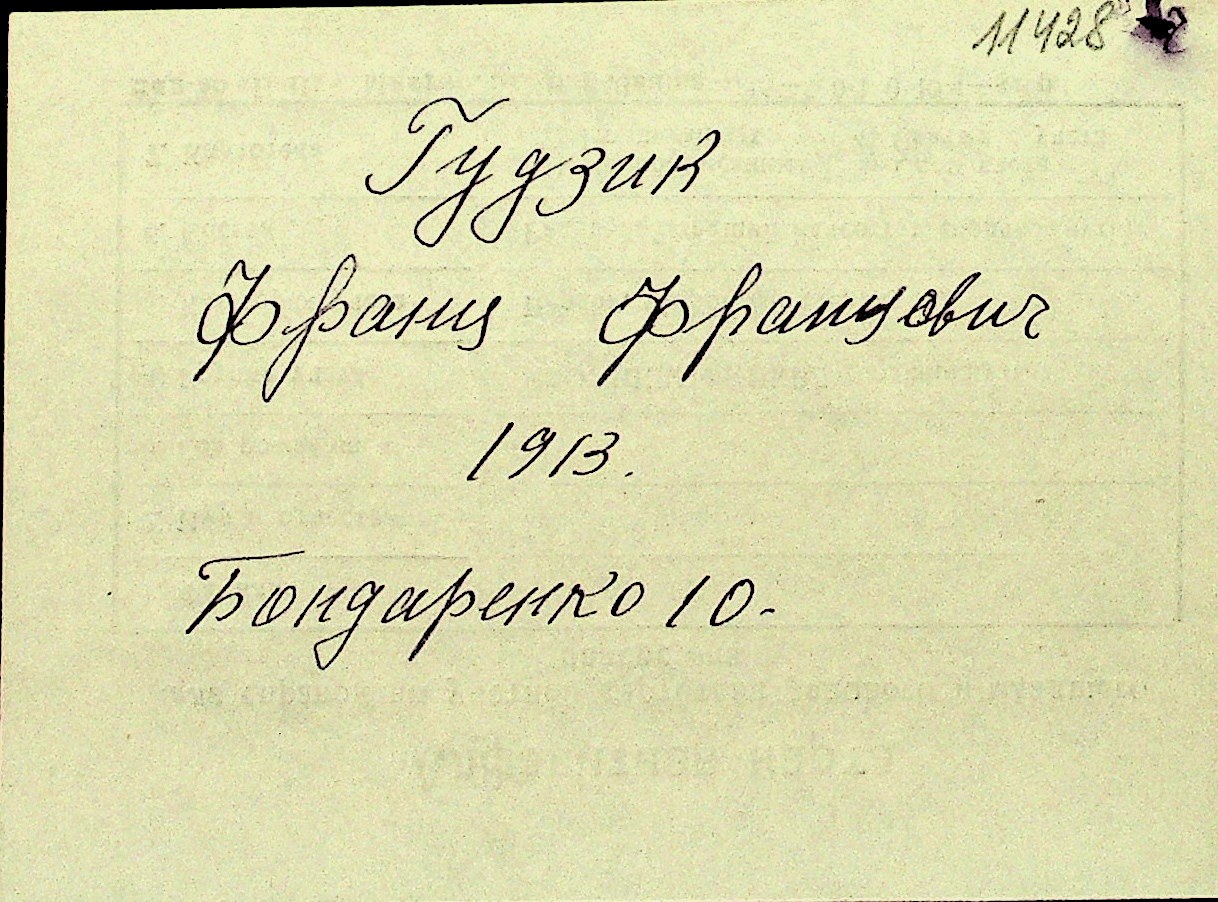 11428
Гудзик
Франц Францович
1913.
Бондаренко Ю.